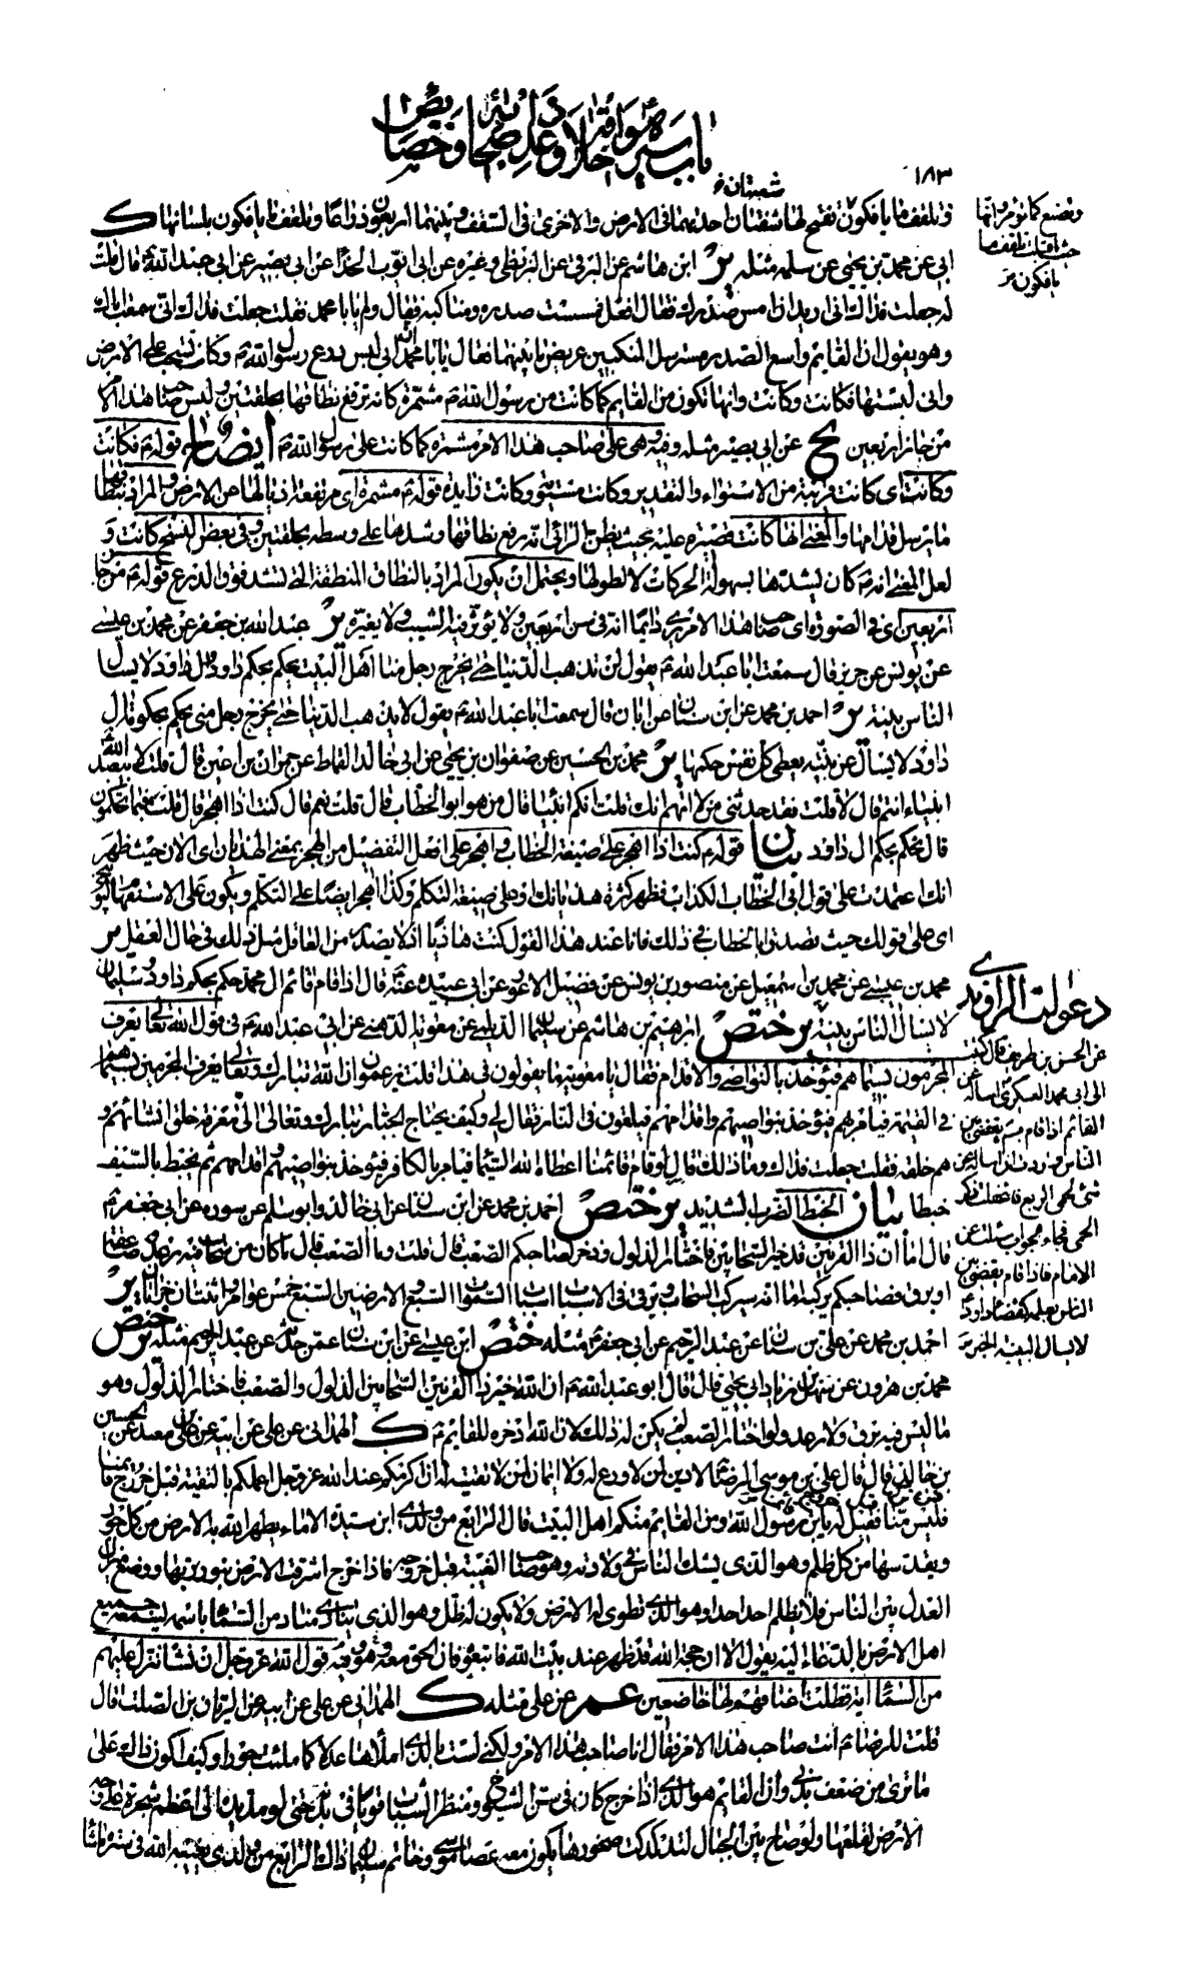 باب سيره واخلاقه وعدد اصحابه وخصائص
١٨٣
شعبتان
وتلقف ما يأفكون تفتح لها شفتان احديهما في الارض والاخرى في السقف وبينهما اربعون ذراعا وتلقف ما يأفكون بلسانها ك
ابي عن محمد بن يحيى عن سلمة مثله ير ابن هاشم عن البرقي عن البزنطي وغيره عن ابي ايوب الحذاء عن ابي بصير عن ابي عبد الله ع قال قلت
له جعلت فداك اني اريد ان امس صدرك فقال افعل فمسست صدره ومناكبه فقال ولم يا با محمد فقلت جعلت فداك اني سمعت اباك
وهو يقول ان القائم واسع الصدر مسترسل المنكبين عريض ما بينهما فقال يا با محمد ان ابي لبس درع رسول الله ص وكانت تسحب على الارض
واني لبستها فكانت وكانت وانها تكون من القائم كما كانت من رسول الله ص مشمرة كانه ترفع نطاقها بحلقتين وليس صاحب هذا الامر
من جاز اربعين يج عن ابي بصير مثله وفيه وهي على صاحب هذا الامر مشمرة كما كانت على رسول الله ص ايضاح قوله ع فكانت
وكانت اي كانت قريبة من الاستواء والتقدير وكانت مستوية وكانت زايدة قوله ع مشمرة اي مرتفعة اذيالها عن الارض والمراد بنطاقها
ما يرسل قدامها والمعنى انها كانت قصيرة عليه بحيث يظن الرائي انه رفع نطاقها وشدها على وسطه بحلقتين وفي بعض النسخ كانت و
لعل المعنى انه ع كان يشدها بسهولة الحركات لا لطولها ويحتمل ان يكون المراد بالنطاق المنطقة التي تشد فوق الدرع قوله ع من جاز
اربعين اي في الصورة اي صاحب هذا الامر يرى دائما انه في سن اربعين ولا يؤثر فيه الشيب ولا يغيره ير عبد الله بن جعفر عن محمد بن عيسى
عن يونس عن حريز قال سمعت ابا عبد الله ع يقول لن تذهب الدنيا حتى يخرج رجل منا اهل البيت يحكم بحكم داود وال داود لا يسال
الناس بينة ير احمد بن محمد عن ابن سنان عن ابان قال سمعت ابا عبد الله ع يقول لا يذهب الدنيا حتى يخرج رجل مني يحكم بحكومة ال
داود لا يسال عن بينة يعطي كل نفس حكمها ير محمد بن الحسين عن صفوان بن يحيى عن ابي خالد القماط عن حمران بن اعين قال قلت لابي عبد الله
انبياء انتم قال لا قلت فقد حدثني من لا اتهم انك قلت انكم انبياء قال من هو ابو الخطاب قال قلت نعم قال كنت اذا اهجر قال قلت بما تحكمون
قال نحكم بحكم ال داود بيان قوله ع كنت اذا اهجر على صيغة الخطاب واهجر على افعل التفضيل من الهجر بمعنى الهذيان اي الان حيث ظهر
انك اعتمدت على قول ابي الخطاب الكذاب ظهر كثرة هذيانك او على صيغة التكلم وكذا اهجر ايضا على التكلم ويكون على الاستفهام التوبيخي
اي على قولك حيث تصدق ابا الخطاب في ذلك فانا عند هذا القول كنت هاذيا اذ لا يصدر من العاقل مثل ذلك في حال العقل ير
محمد بن عيسى عن محمد بن اسمعيل عن منصور بن يونس عن فضيل الاعور عن ابي عبيدة عنه ع قال اذا قام قائم ال محمد حكم بحكم داود وسليمان
لا يسال الناس بينة ير ختص ابرهيم بن هاشم عن سليمان الديلمي عن معوية الدهني عن ابي عبد الله ع في قول الله تعالى يعرف
المجرمون بسيماهم فيؤخذ بالنواصي والاقدام فقال يا معوية ما يقولون في هذا قلت يزعمون ان الله تبارك وتعالى يعرف المجرمين بسيماهم
في القيمة فيامر بهم فيؤخذ بنواصيهم واقدامهم فيلقون في النار فقال لي وكيف يحتاج الجبار تبارك وتعالى الى معرفة خلق انشاهم و
هم خلقه فقلت جعلت فداك وما ذلك قال لو قام قائمنا اعطاه الله السيما فيامر بالكافر فيؤخذ بنواصيهم واقدامهم ثم يخبط بالسيف
خبطا بيان الخبط الضرب الشديد ير ختص احمد بن محمد عن ابن سنان عن ابي خالد وابو سلام عن سورة عن ابي جعفر ع
قال اما ان ذا القرنين قد خير السحابين فاختار الذلول وذخر لصاحبكم الصعب قال قلت وما الصعب قال ما كان من سحاب فيه رعد وصاعقة
او برق فصاحبكم يركبه اما انه سيركب السحاب ويرقى في الاسباب اسباب السموات السبع والارضين السبع خمس عوامر واثنتان خرابان ير
احمد بن محمد عن علي بن سنان عن عبد الرحيم عن ابي جعفر ع مثله ختص ابن عيسى عن ابن سنان عمن حدثه عن عبد الرحيم مثله ير ختص
محمد بن هرون عن سهل بن زياد ابي يحيى قال قال ابو عبد الله ع ان الله خير ذا القرنين السحابين الذلول والصعب فاختار الذلول وهو
ما ليس فيه برق ولا رعد ولو اختار الصعب لم يكن له ذلك لان الله ادخره للقائم ع ك الهمداني عن علي عن ابيه عن علي بن معبد عن الحسين
بن خالد قال قال علي بن موسى الرضا ع لا دين لمن لا ورع له ولا ايمان لمن لا تقية له ان اكرمكم عند الله عز وجل اعملكم بالتقية قبل خروج قائمنا
فليس منا فقيل له يا بن رسول الله ومن القائم منكم اهل البيت قال الرابع من ولدي ابن سيدة الاماء يطهر الله به الارض من كل جور
ويقدسها من كل ظلم وهو الذي يشك الناس في ولادته وهو صاحب الغيبة قبل خروجه فاذا خرج اشرقت الارض بنور ربها ووضع ميزان
العدل بين الناس فلا يظلم احد احدا وهو الذي تطوى له الارض ولا يكون له ظل وهو الذي ينادي مناد من السماء باسمه يسمعه جميع
اهل الارض بالدعاء اليه يقول الا ان حجة الله قد ظهر عند بيت الله فاتبعوه فان الحق معه وفيه وهو قول الله عز وجل ان نشا ننزل عليهم
من السماء اية فظلت اعناقهم لها خاضعين عم عن علي مثله ك الهمداني عن علي عن ابيه عن الريان بن الصلت قال
قلت للرضا ع انت صاحب هذا الامر فقال انا صاحب هذا الامر ولكني لست بالذي املاها عدلا كما ملئت جورا وكيف اكون ذاك على
ما ترى من ضعف بدني وان القائم هو الذي اذا خرج كان في سن الشيوخ ومنظر الشباب قويا في بدنه حتى لو مد يده الى اعظم شجرة على وجه
الارض لقلعها ولو صاح بين الجبال لتدكدكت صخورها يكون معه عصا موسى وخاتم سليمان ذاك الرابع من ولدي يغيبه الله في ستره ما شاء
وتصنع كما تؤمر وانها
حيث اقبلت تلقف ما
يأفكون ير
دعوات الراوندي
عن الحسن بن طريف قال كتبت
الى ابي محمد العسكري اسأله عن
القائم اذا قام بم يقضي بين
الناس واردت ان اساله عن
شئ لحمى الربع فاغفلت ذكر
الحمى فجاء الجواب سئلت عن
الامام فاذا قام يقضي بين
الناس بعلمه كقضاء داود
لا يسال البينة الخبر